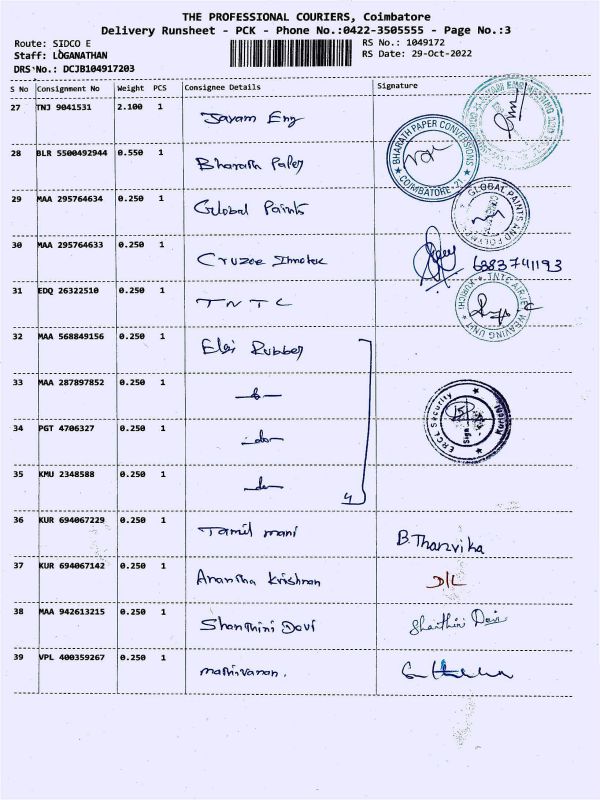 THE PROFESSIONAL COURIERS, Coimbatore
Delivery Runsheet - PCK - Phone No.:0422-3505555 - Page No.:3
Route: SIDCO E
RS No.: 1049172
Staff: LOGANATHAN
RS Date: 29-Oct-2022
DRS No.: DCJB104917203
S No Consignment No Weight PCS Consignee Details Signature
27 TNJ 9041531 2.100 1 Jayam Eng
28 BLR 5500492944 0.550 1 Bharath Paper
BHARATH PAPER CONVERSIONS
COIMBATORE-21
29 MAA 295764634 0.250 1 Global Paints
GLOBAL PAINTS AND
30 MAA 295764633 0.250 1 Cruzee
6383741193
31 EDQ 26322510 0.250 1 TNTC
TNTC AIRJET WEAVING UNIT * KURICHI *
32 MAA 568849156 0.250 1 Elgi Rubber
33 MAA 287897852 0.250 1
34 PGT 4706327 0.250 1 -do-
ERCL Security
Sign
35 KMU 2348588 0.250 1 -do-
4
36 KUR 694067229 0.250 1 Tamil mani B.Thanvika
37 KUR 694067142 0.250 1 Anantha Krishnan D/L
38 MAA 942613215 0.250 1 Shanthini Devi
39 VPL 400359267 0.250 1 mathivanan.